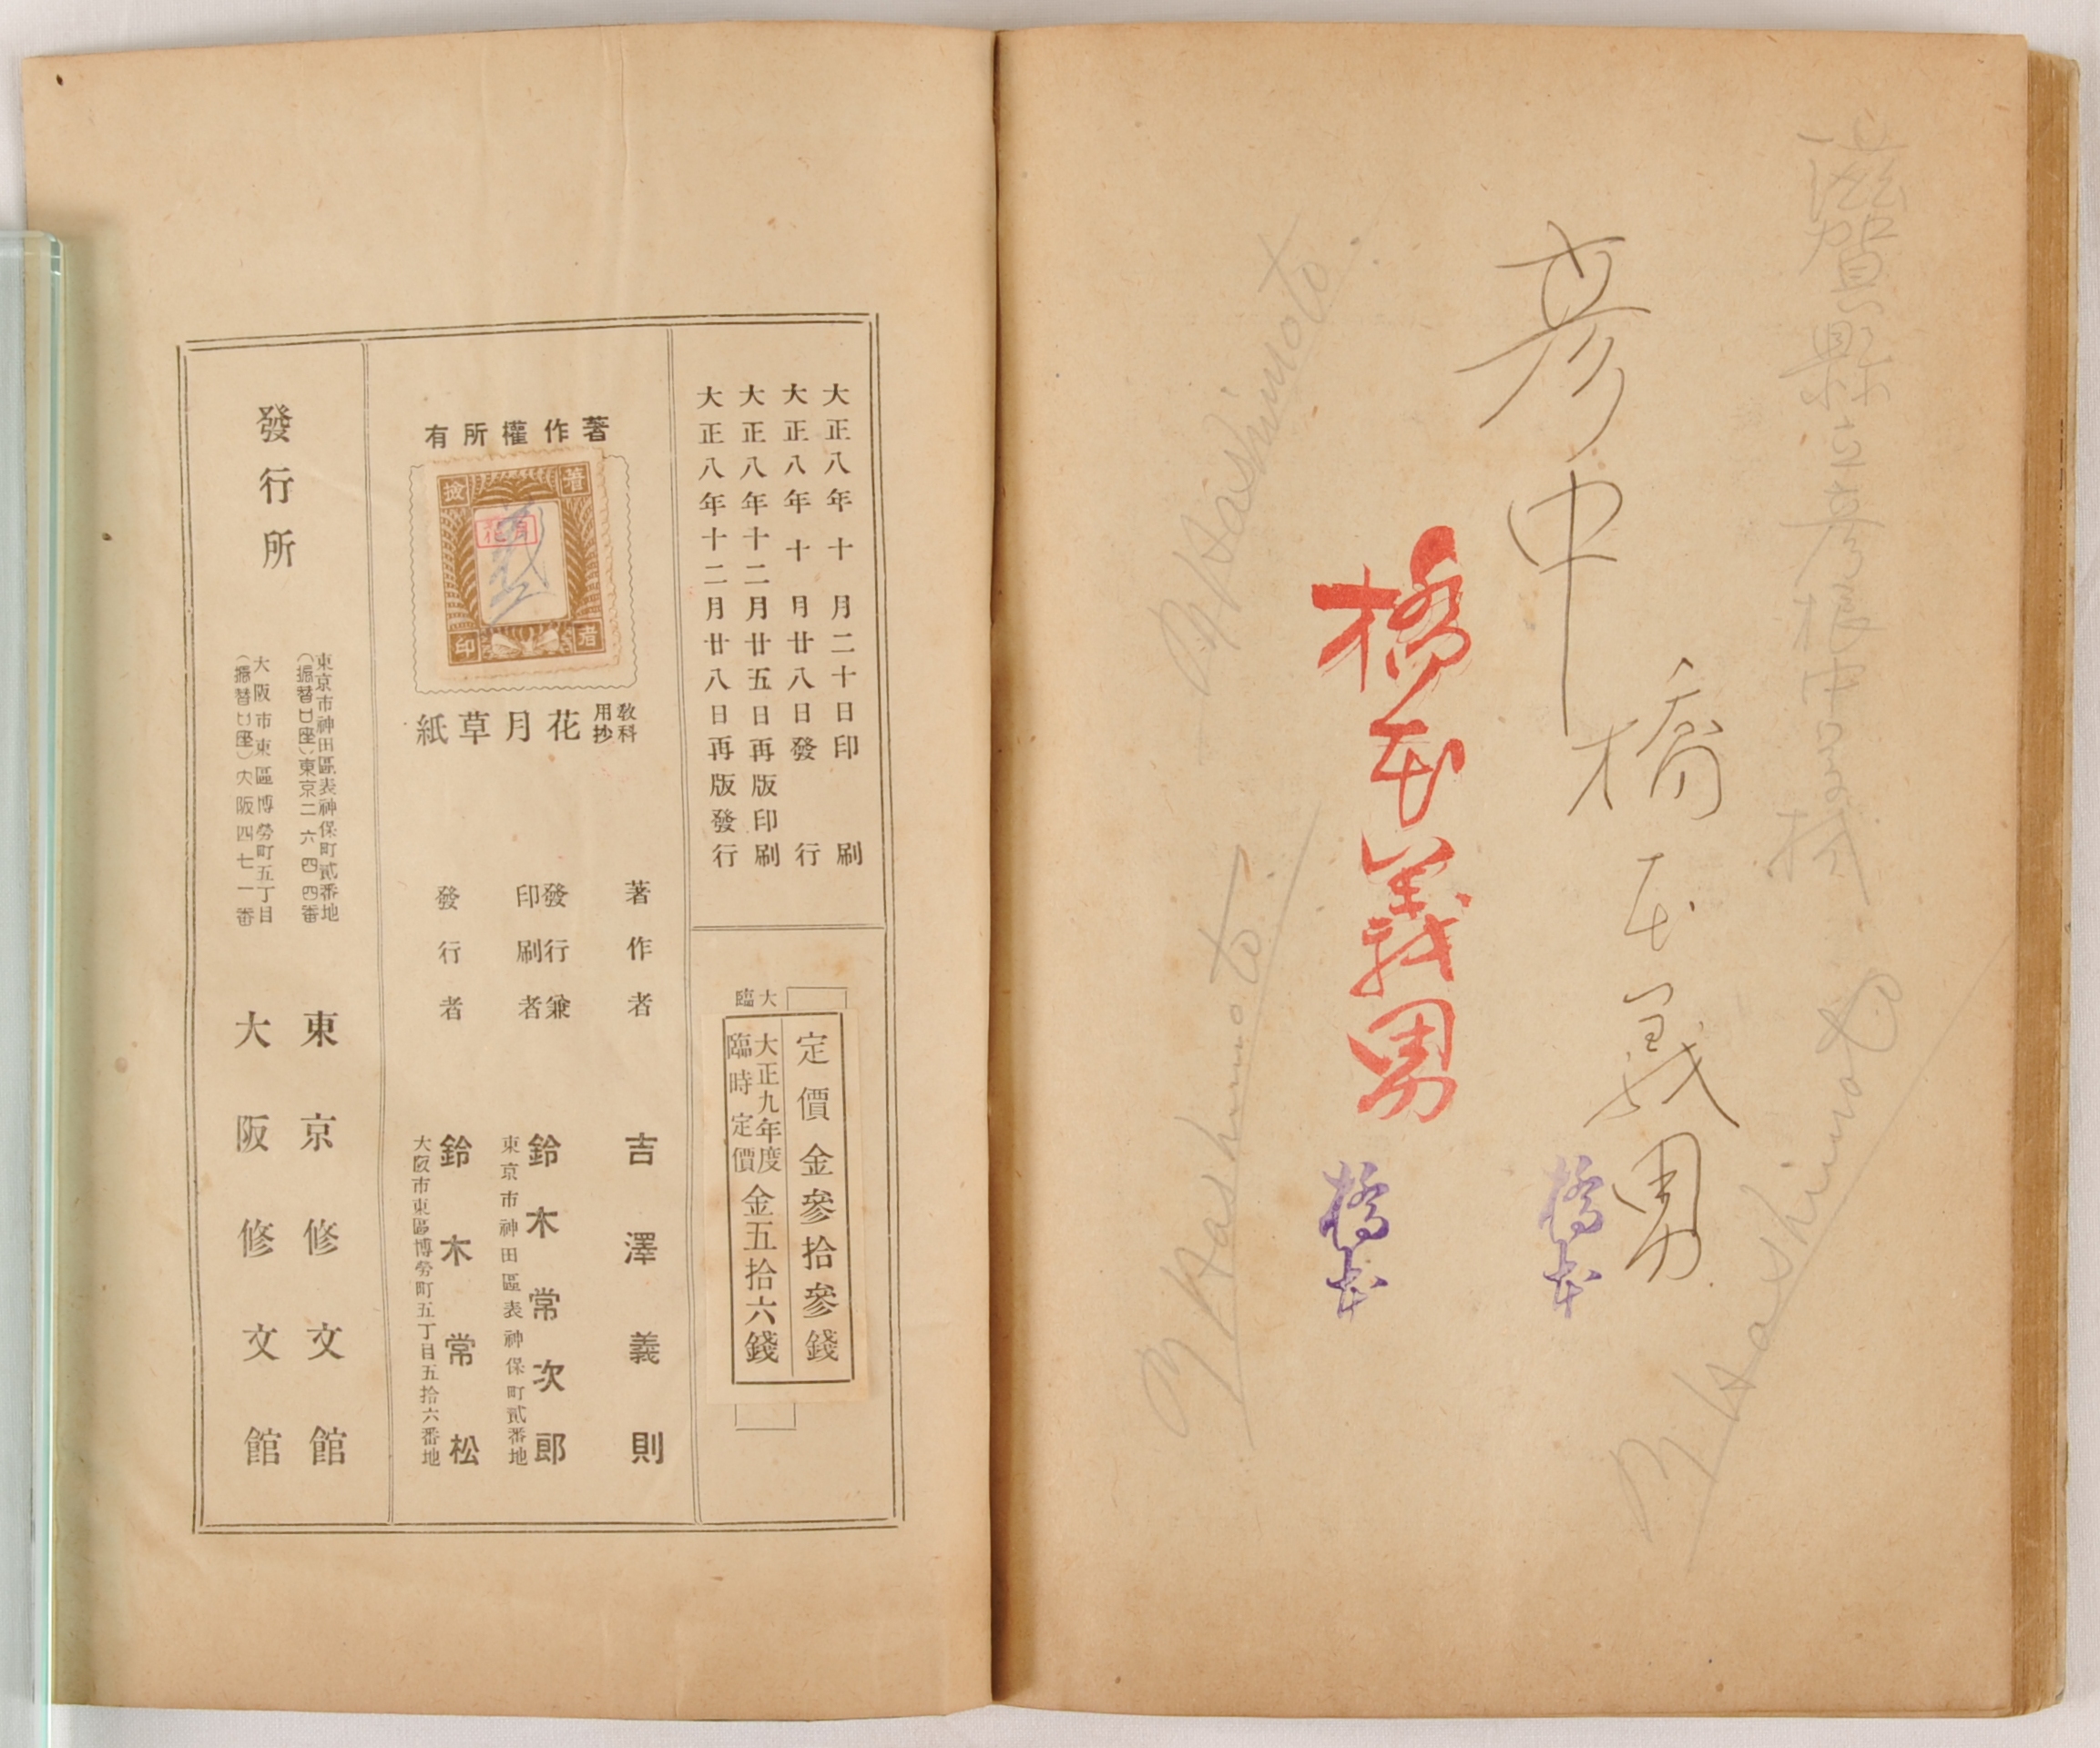 滋賀縣立彦根中学校
彦中
橋本義男
橋本義男
橋本
橋本
M Hashimoto
Y Hashimoto
M Hashimoto
大正八年十月二十日印刷
大正八年十月廿八日發行
大正八年十二月廿五日再版印刷
大正八年十二月廿八日再版發行
大
臨
定價金參拾參錢
大正九年度
臨時定價
金五拾六錢
著作權所有
著
者
檢
印
教科
用抄
花月草紙
著作者
吉澤義則
發行兼
印刷者
東京市神田區表神保町貳番地
鈴木常次郎
發行者
大阪市東區博勞町五丁目五拾六番地
鈴木常松
發行所
東京市神田區表神保町貳番地
(振替口座)東京二六四四番
東京修文館
大阪市東區博勞町五丁目
(振替口座)大阪四七一番
大阪修文館